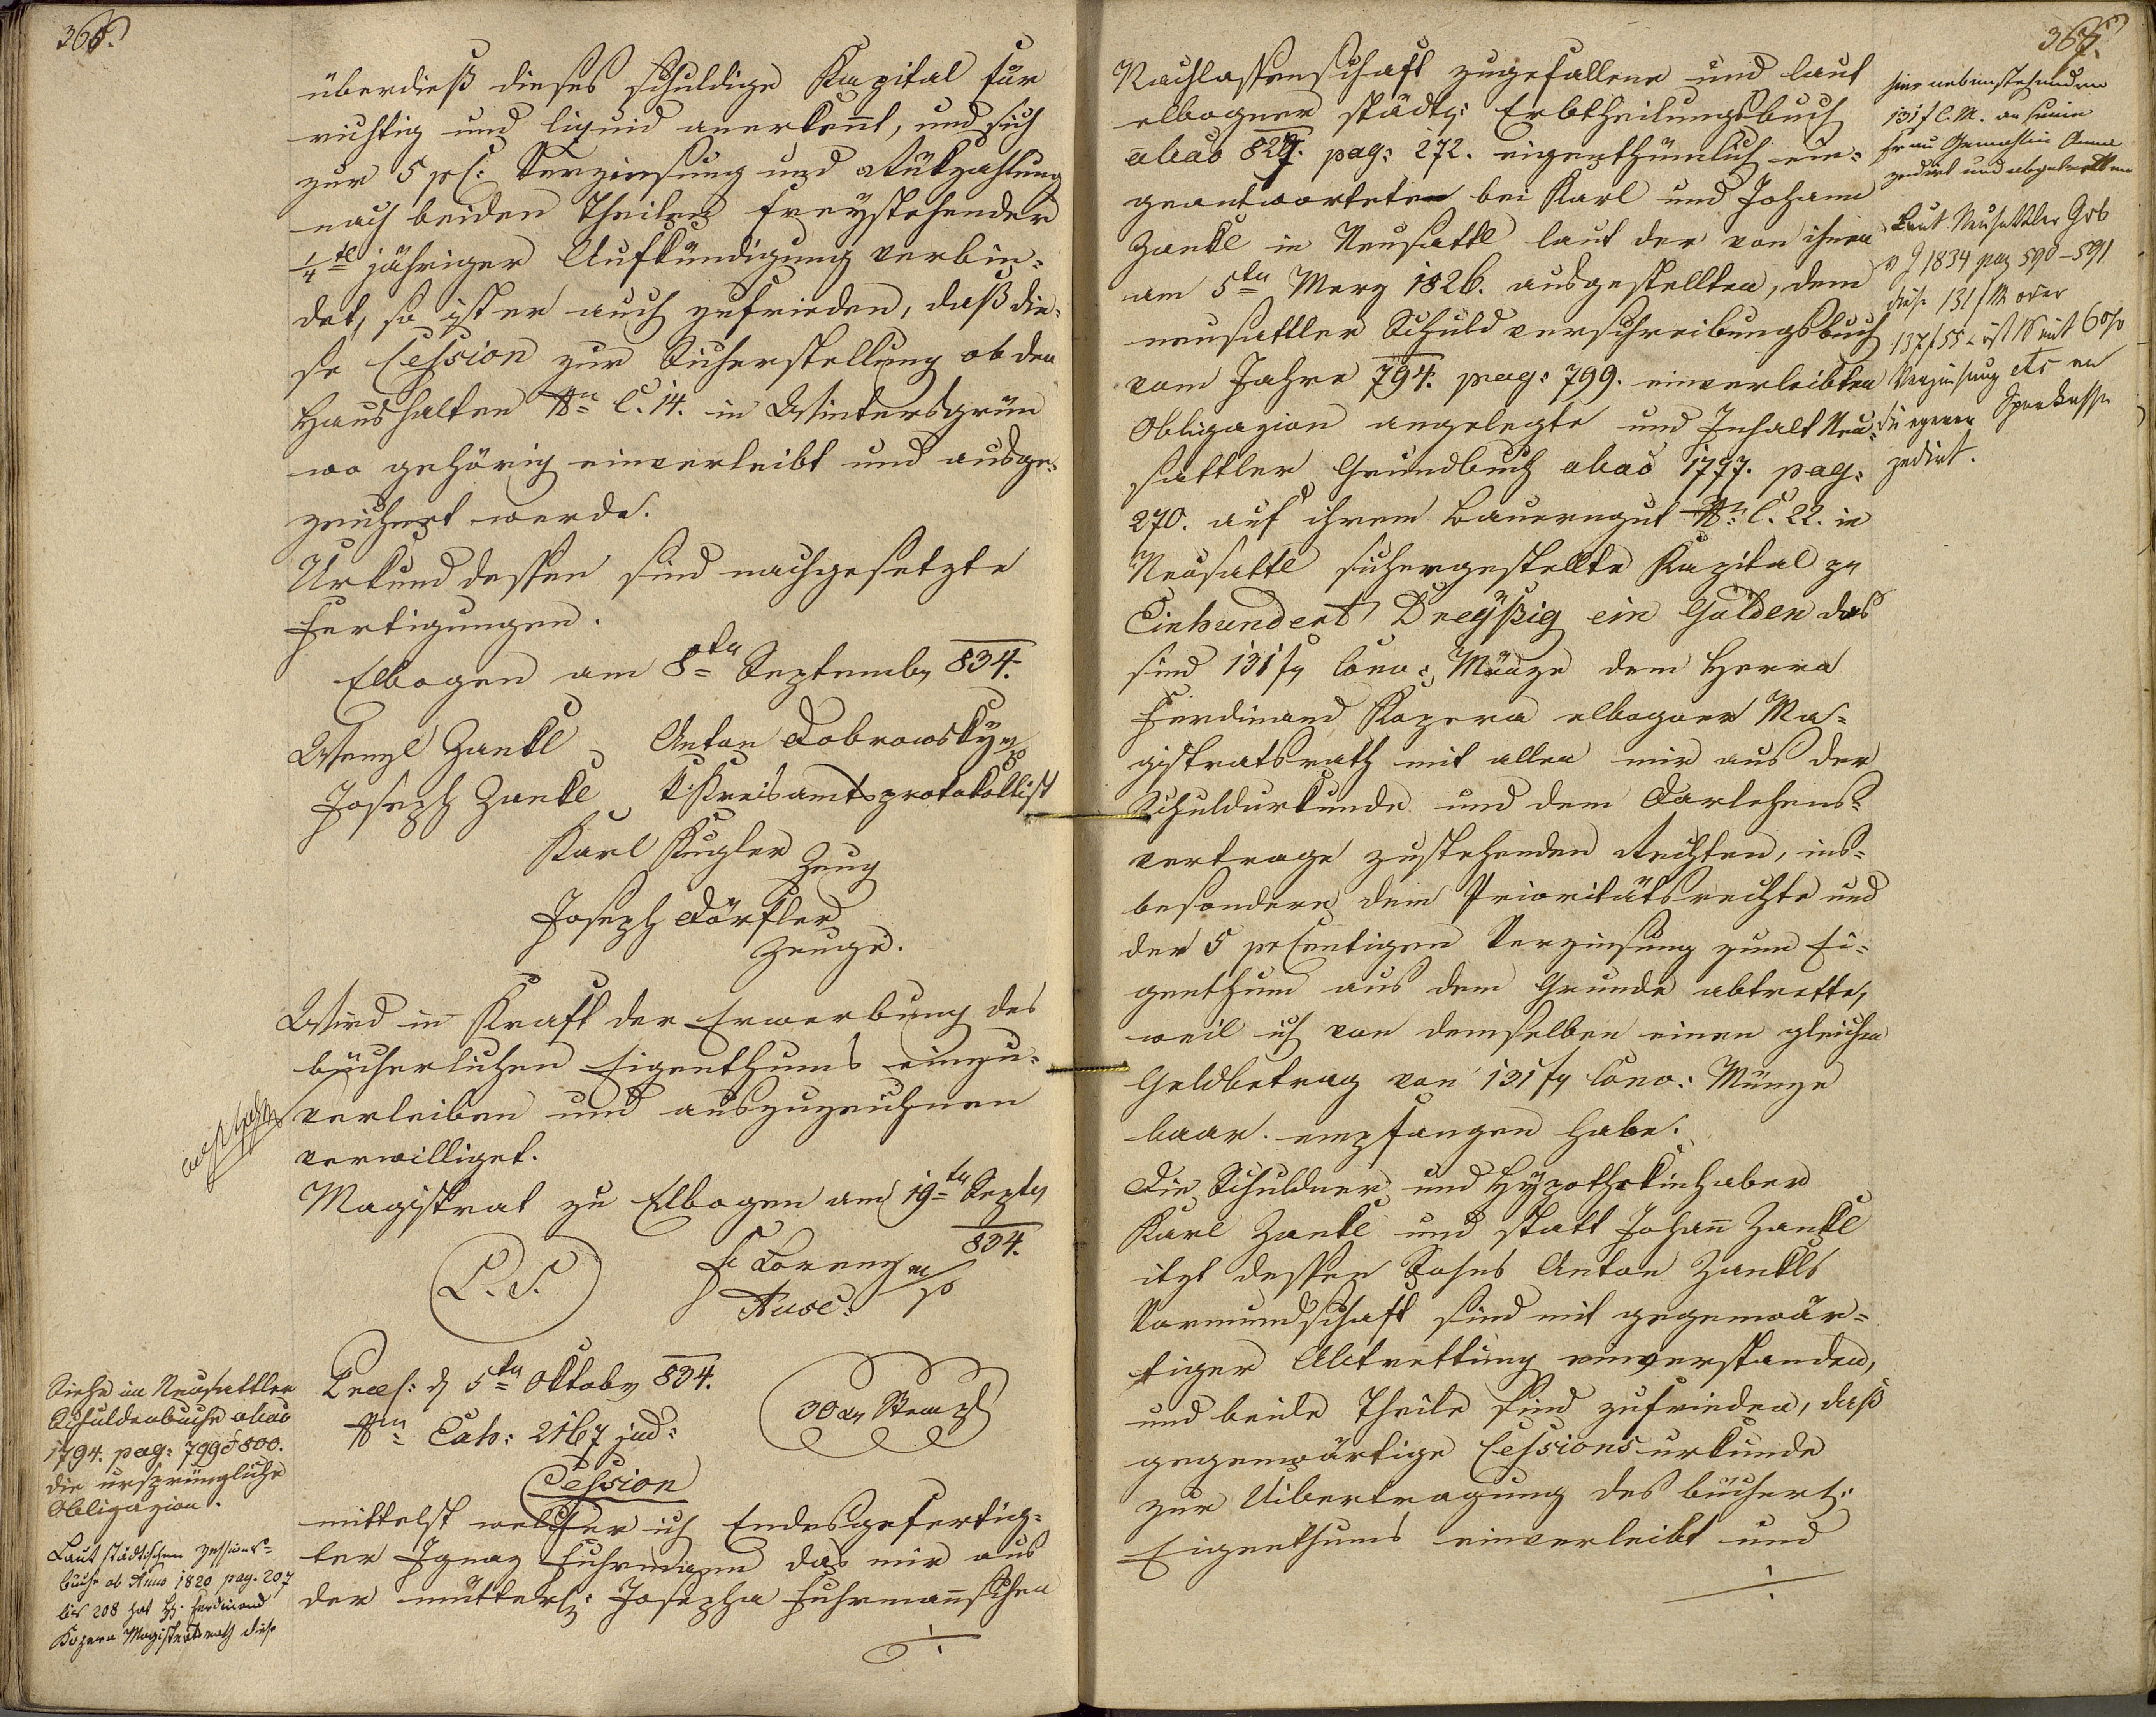 366.
überdieß dieses schuldige Kapital für
richtig und liquid anerkennt, und sich
zur 5 pC: Verzinsung und Rükzahlung
nach beiden Theilen freystehender
1/4tl jähriger Aufkündigung verbin=
det, so ist er auch zufrieden, daß die=
se Cession zur Sicherstellung ob den
Haushalten Nro C. 14. in Wintersgrün
wo gehörig einverleibt und ausge=
zeichnet werde.
Urkund dessen sind nachgesetzte
Fertigungen.
Elbogen am 8ten Septemb. 834.
Wenzl Zankl Anton Dobrowsky m/p
Joseph Zankl k. Kreisamtsprotokollist
Karl Kugler
Zeug
Joseph Dörfler
Zeuge.
Wird in Kraft der Erwerbung des
bücherlichen Eigenthums einzu=
verleiben und auszuzeichnen
verwilliget.
Magistrat zu Elbogen am 19ten Septb
834.
L. S. Lorenz m/p
Ausc:
Praes: d 5ten Oktob. 834.
Nro Exh: 2167 jud:
30 xr Stempl
Cession
mittelst welcher ich Endesgefertig=
ter Ignaz Fuhrmann das mir aus
der mütterl: Josepha Fuhrmannschen
Siehe im Neusattler
Schuldenbuche ab ao
1794. pag: 799 & 800.
die ursprüngliche
Obligazion.
Laut städtischen Zessions=
buche ab Anno 1820 pag. 207
bis 208 hat H. Ferdinand
Kozera Magistratsrath diese
367.
Nachlassenschaft zugefallene und laut
elbogner städt: Erbtheilungsbuch
ab ao 827. pag: 272. eigenthümlich ein=
geantwortete bei Karl und Johann
Zankl in Neusattl laut der von ihnen
am 5ten Merz 1826. ausgestellten, dem
neusattler Schuldverschreibungsbuch
vom Jahre 794. pag: 799. einverleibten
Obligazion angelegte und Inhalt Neu=
sattler Grundbuch ab ao 1797. pag:
270. auf ihrem Bauerngut Nro C. 22. in
Neusattl sichergestellte Kapital zu
Einhundert Dreyßig ein Gulden das
sind 131 fr Conv: Münze dem Herrn
Ferdinand Kozera elbogner Ma=
gistratsrath mit allen mir aus der
Schuldurkunde und dem Darlehens=
vertrage zustehenden Rechten, ins=
besondere dem Prioritätsrechte und
der 5 prcentigen Verzinsung zum Ei=
genthum aus dem Grunde abtrette,
weil ich von demselben einen gleichen
Geldbetrag von 131 fr Conv: Münze
baar empfangen habe.
Die Schuldner und Hypothekinhaber
Karl Zankl und statt Johann Zankl
itzt dessen Sohns Anton Zankls
Vormundschaft sind mit gegenwär=
tiger Abtrettung einverstanden,
und beide Theile sind zufrieden, daß
gegenwärtige Cessionsurkunde
zur Uibertragung des bücherl:
Eigenthums einverleibt und
hier nebenstehenden
131 f C.M. an seine
Frau Gemahlin Anna
zedirt und abgetretten
Laut Neusattler Grb
v J 1834 pag 590-591
diese 131 f M oder
137 f 55 mit 6%
Verzinsung etc an
die egerer Sparkasse
zedirt.